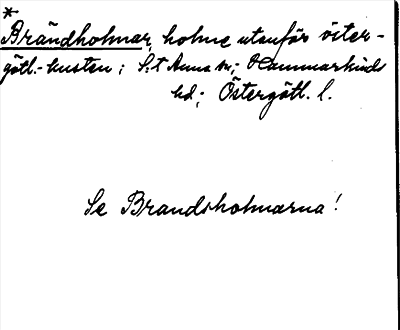 *
Brändholmar, holme utanför öster-
götl.-kusten; S:t Anna sn; Hammarkinds
hd; Östergötl. l.
Se Brandsholmarna!